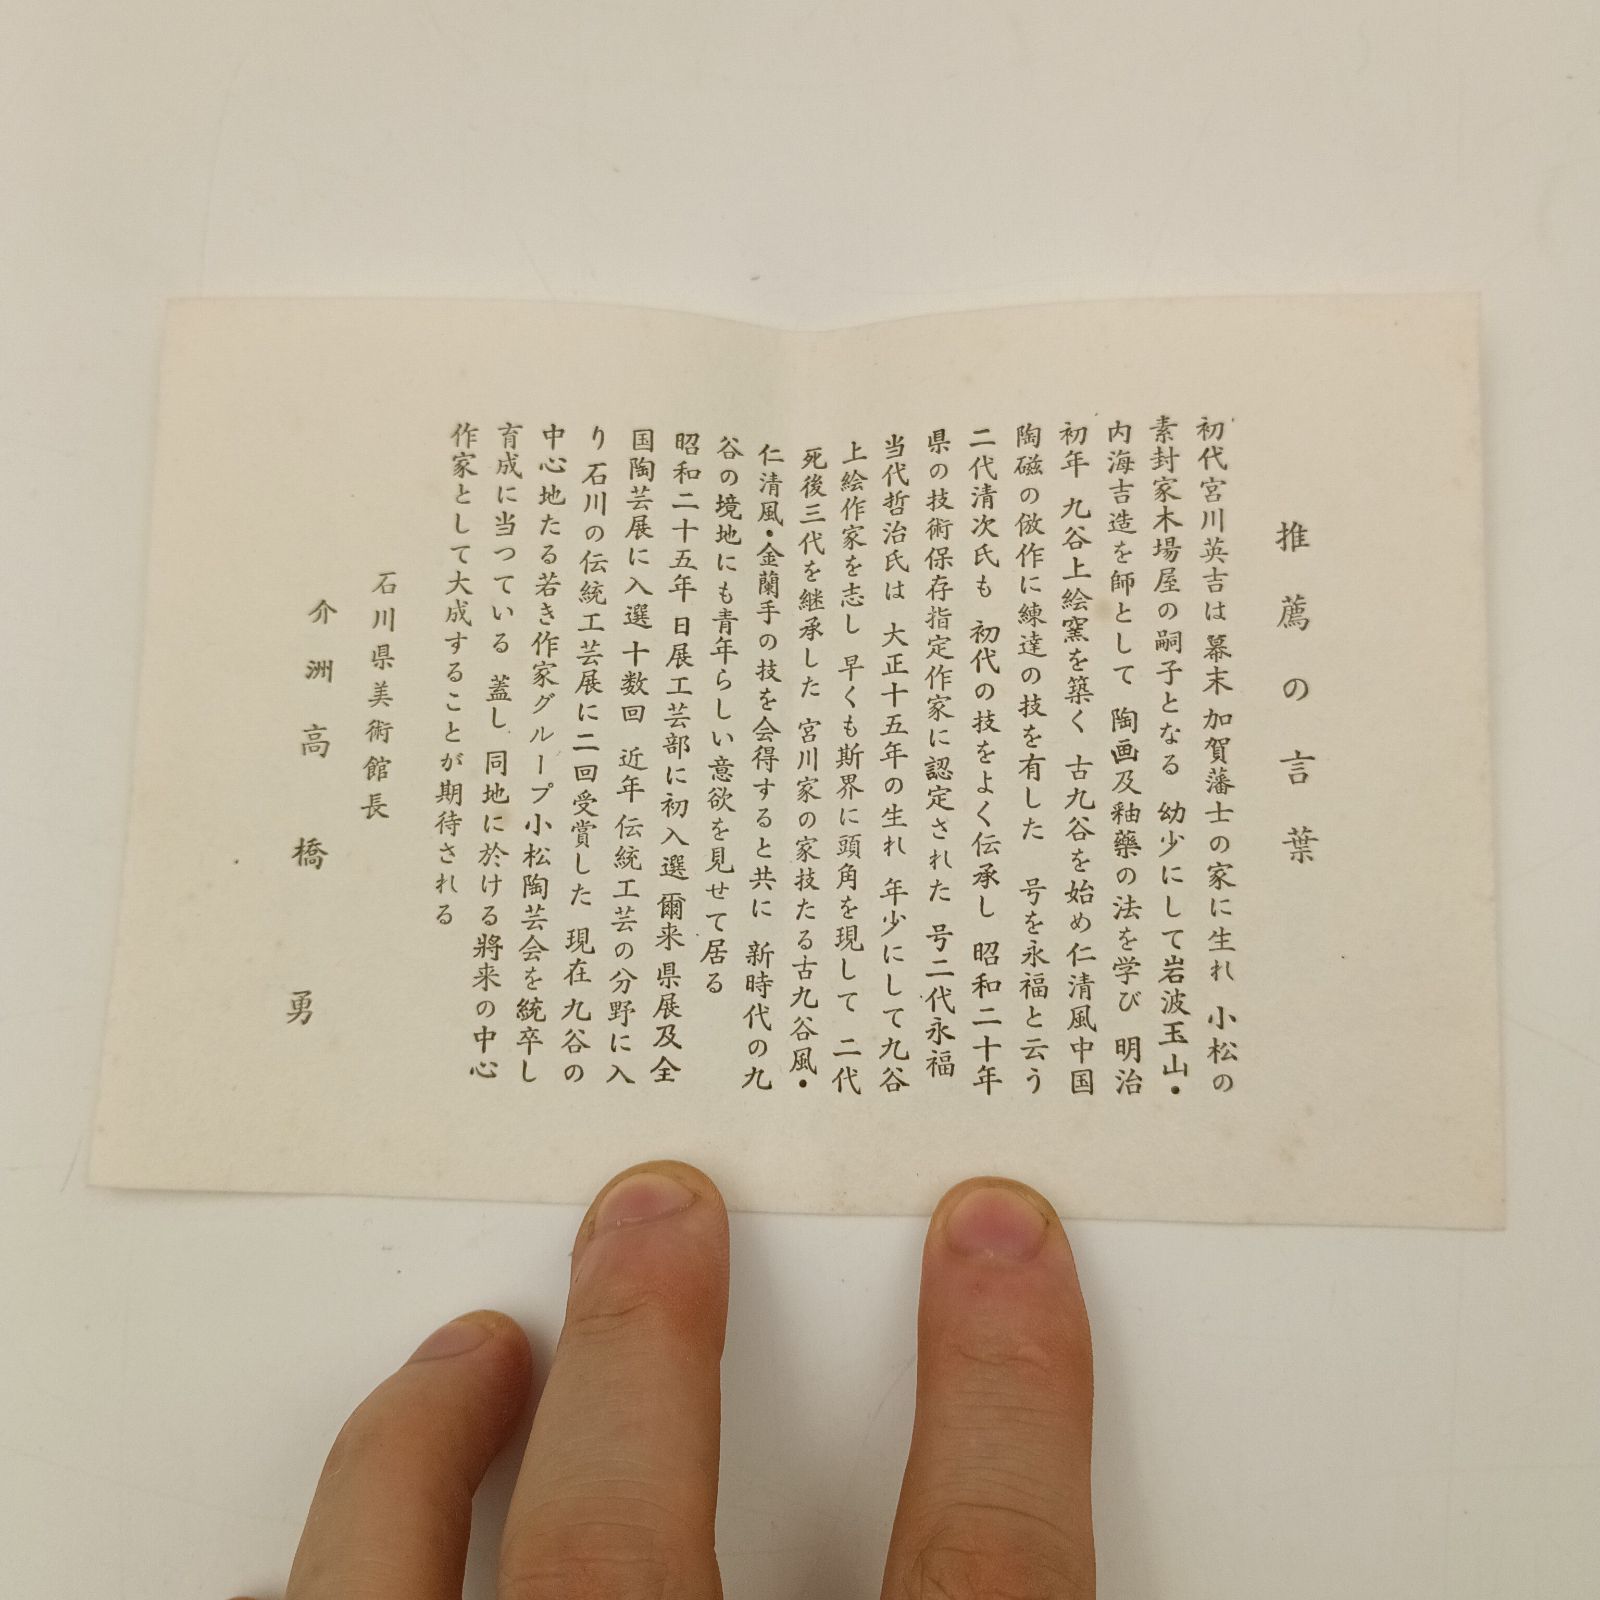 推薦の言葉
初代宮川英吉は 幕末 加賀藩士の家に生れ 小松の
素封家木場屋の嗣子となる 幼少にして岩波玉山・
内海吉造を師として 陶画及釉藥の法を学び 明治
初年 九谷上絵窯を築く 古九谷を始め仁清風中国
陶磁の倣作に練達の技を有した 号を永福と云う
二代清次氏も 初代の技をよく伝承し 昭和二十年
県の技術保存指定作家に認定された 号二代永福
当代哲治氏は 大正十五年の生れ 年少にして九谷
上絵作家を志し 早くも斯界に頭角を現して 二代
死後三代を継承した 宮川家の家技たる古九谷風・
仁清風・金蘭手の技を会得すると共に 新時代の九
谷の境地にも青年らしい意欲を見せて居る
昭和二十五年 日展工芸部に初入選 爾来 県展及全
国陶芸展に入選十数回 近年 伝統工芸の分野に入
り 石川の伝統工芸展に二回受賞した 現在 九谷の
中心地たる若き作家グループ小松陶芸会を統卒し
育成に当つている 蓋し 同地に於ける將来の中心
作家として大成することが期待される
石川県美術館長
介洲 高橋勇